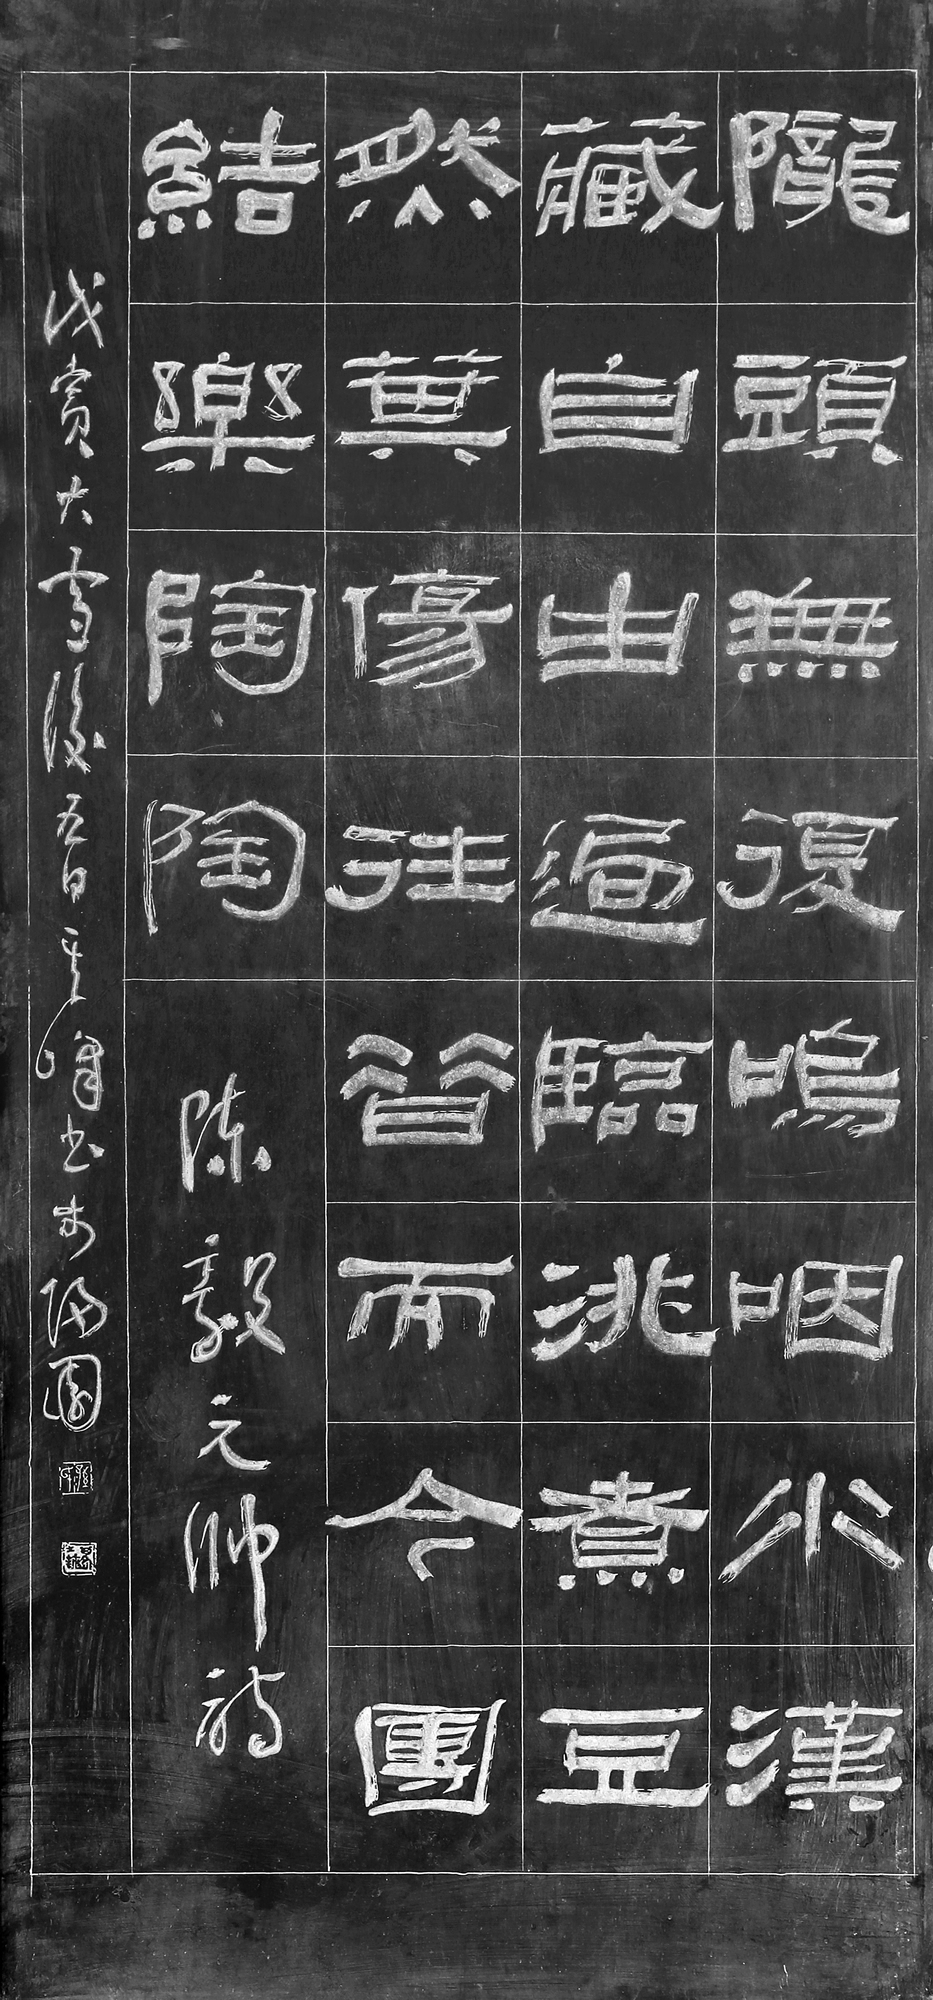 隴頭無復嗚咽水漢
藏自由過臨洮煮豆
然萁傷往昔而今團
結樂陶陶
陳毅元帥詩
戊寅大雪後五日
書於陽園